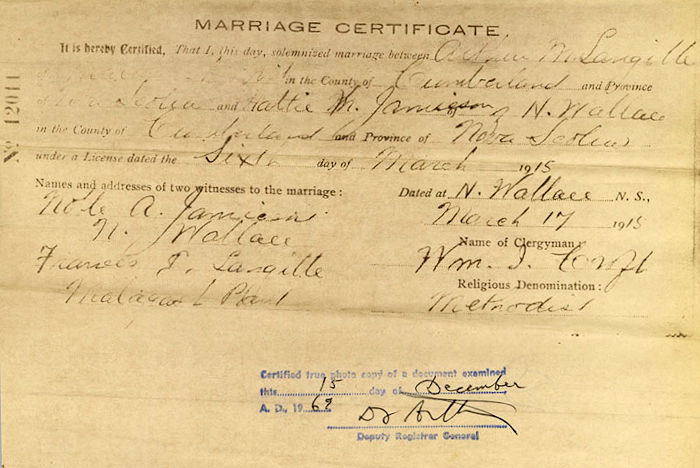 MARRIAGE CERTIFICATE
It is hereby Certified, That I, this day, solemnized marriage between Arthur M. Langille
of in the County of Cumberland and Province
of Nova Scotia and Hattie M. Jamieson of N. Wallace
in the County of Cumberland and Province of Nova Scotia
under a License dated the Sixth day of March 1915
Names and addresses of two witnesses to the marriage:
Dated at N. Wallace N. S.,
March 17 1915
Noble A. Jamieson
N. Wallace
Name of Clergyman:
Wm. J.
Francis T. Langille
Malagash Point
Religious Denomination:
Methodist
Certified true photo copy of a document examined
this 15 day of December
A. D., 1969
Deputy Registrar General